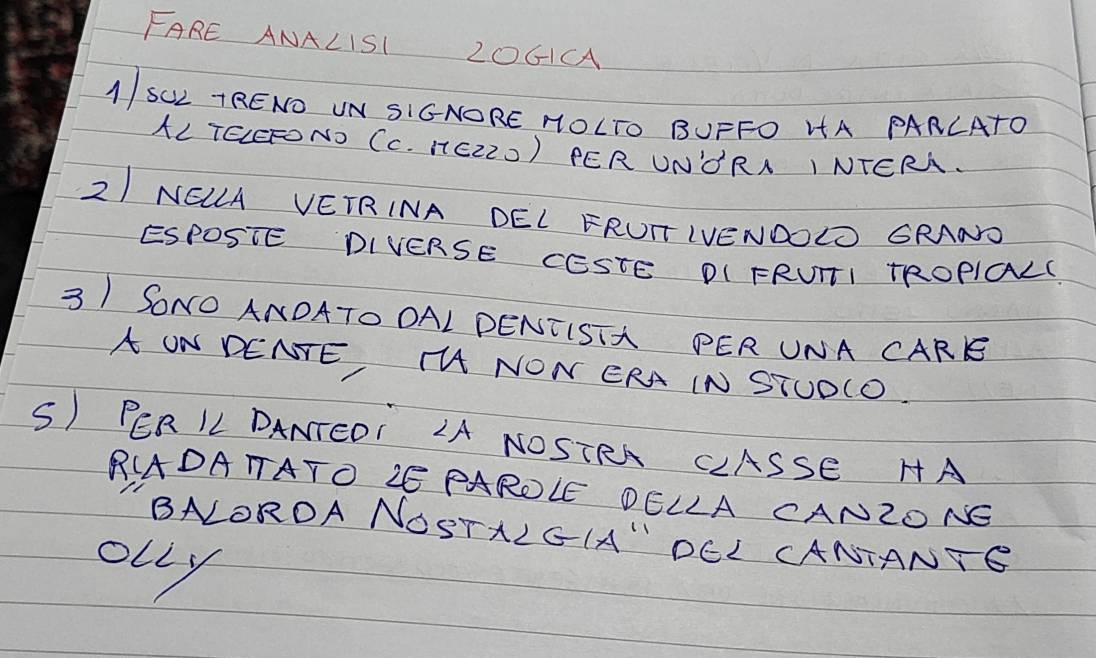 FARE ANALISI LOGICA
1) SUL TRENO UN SIGNORE MOLTO BUFFO HA PARLATO
AL TELEFONO (C. MEZZO) PER UN'ORA INTERA.
2) NELLA VETRINA DEL FRUTTIVENDOLO ERANO
ESPOSTE DIVERSE CESTE DI FRUTTI TROPICALI.
3) SONO ANDATO DAL DENTISTA PER UNA CARIE
A UN DENTE, MA NON ERA IN STUDIO.
5) PER IL DANTEDÌ LA NOSTRA CLASSE HA
RIADATTATO LE PAROLE DELLA CANZONE
"BALORDA NOSTALGIA" DEL CANTANTE
OLLY